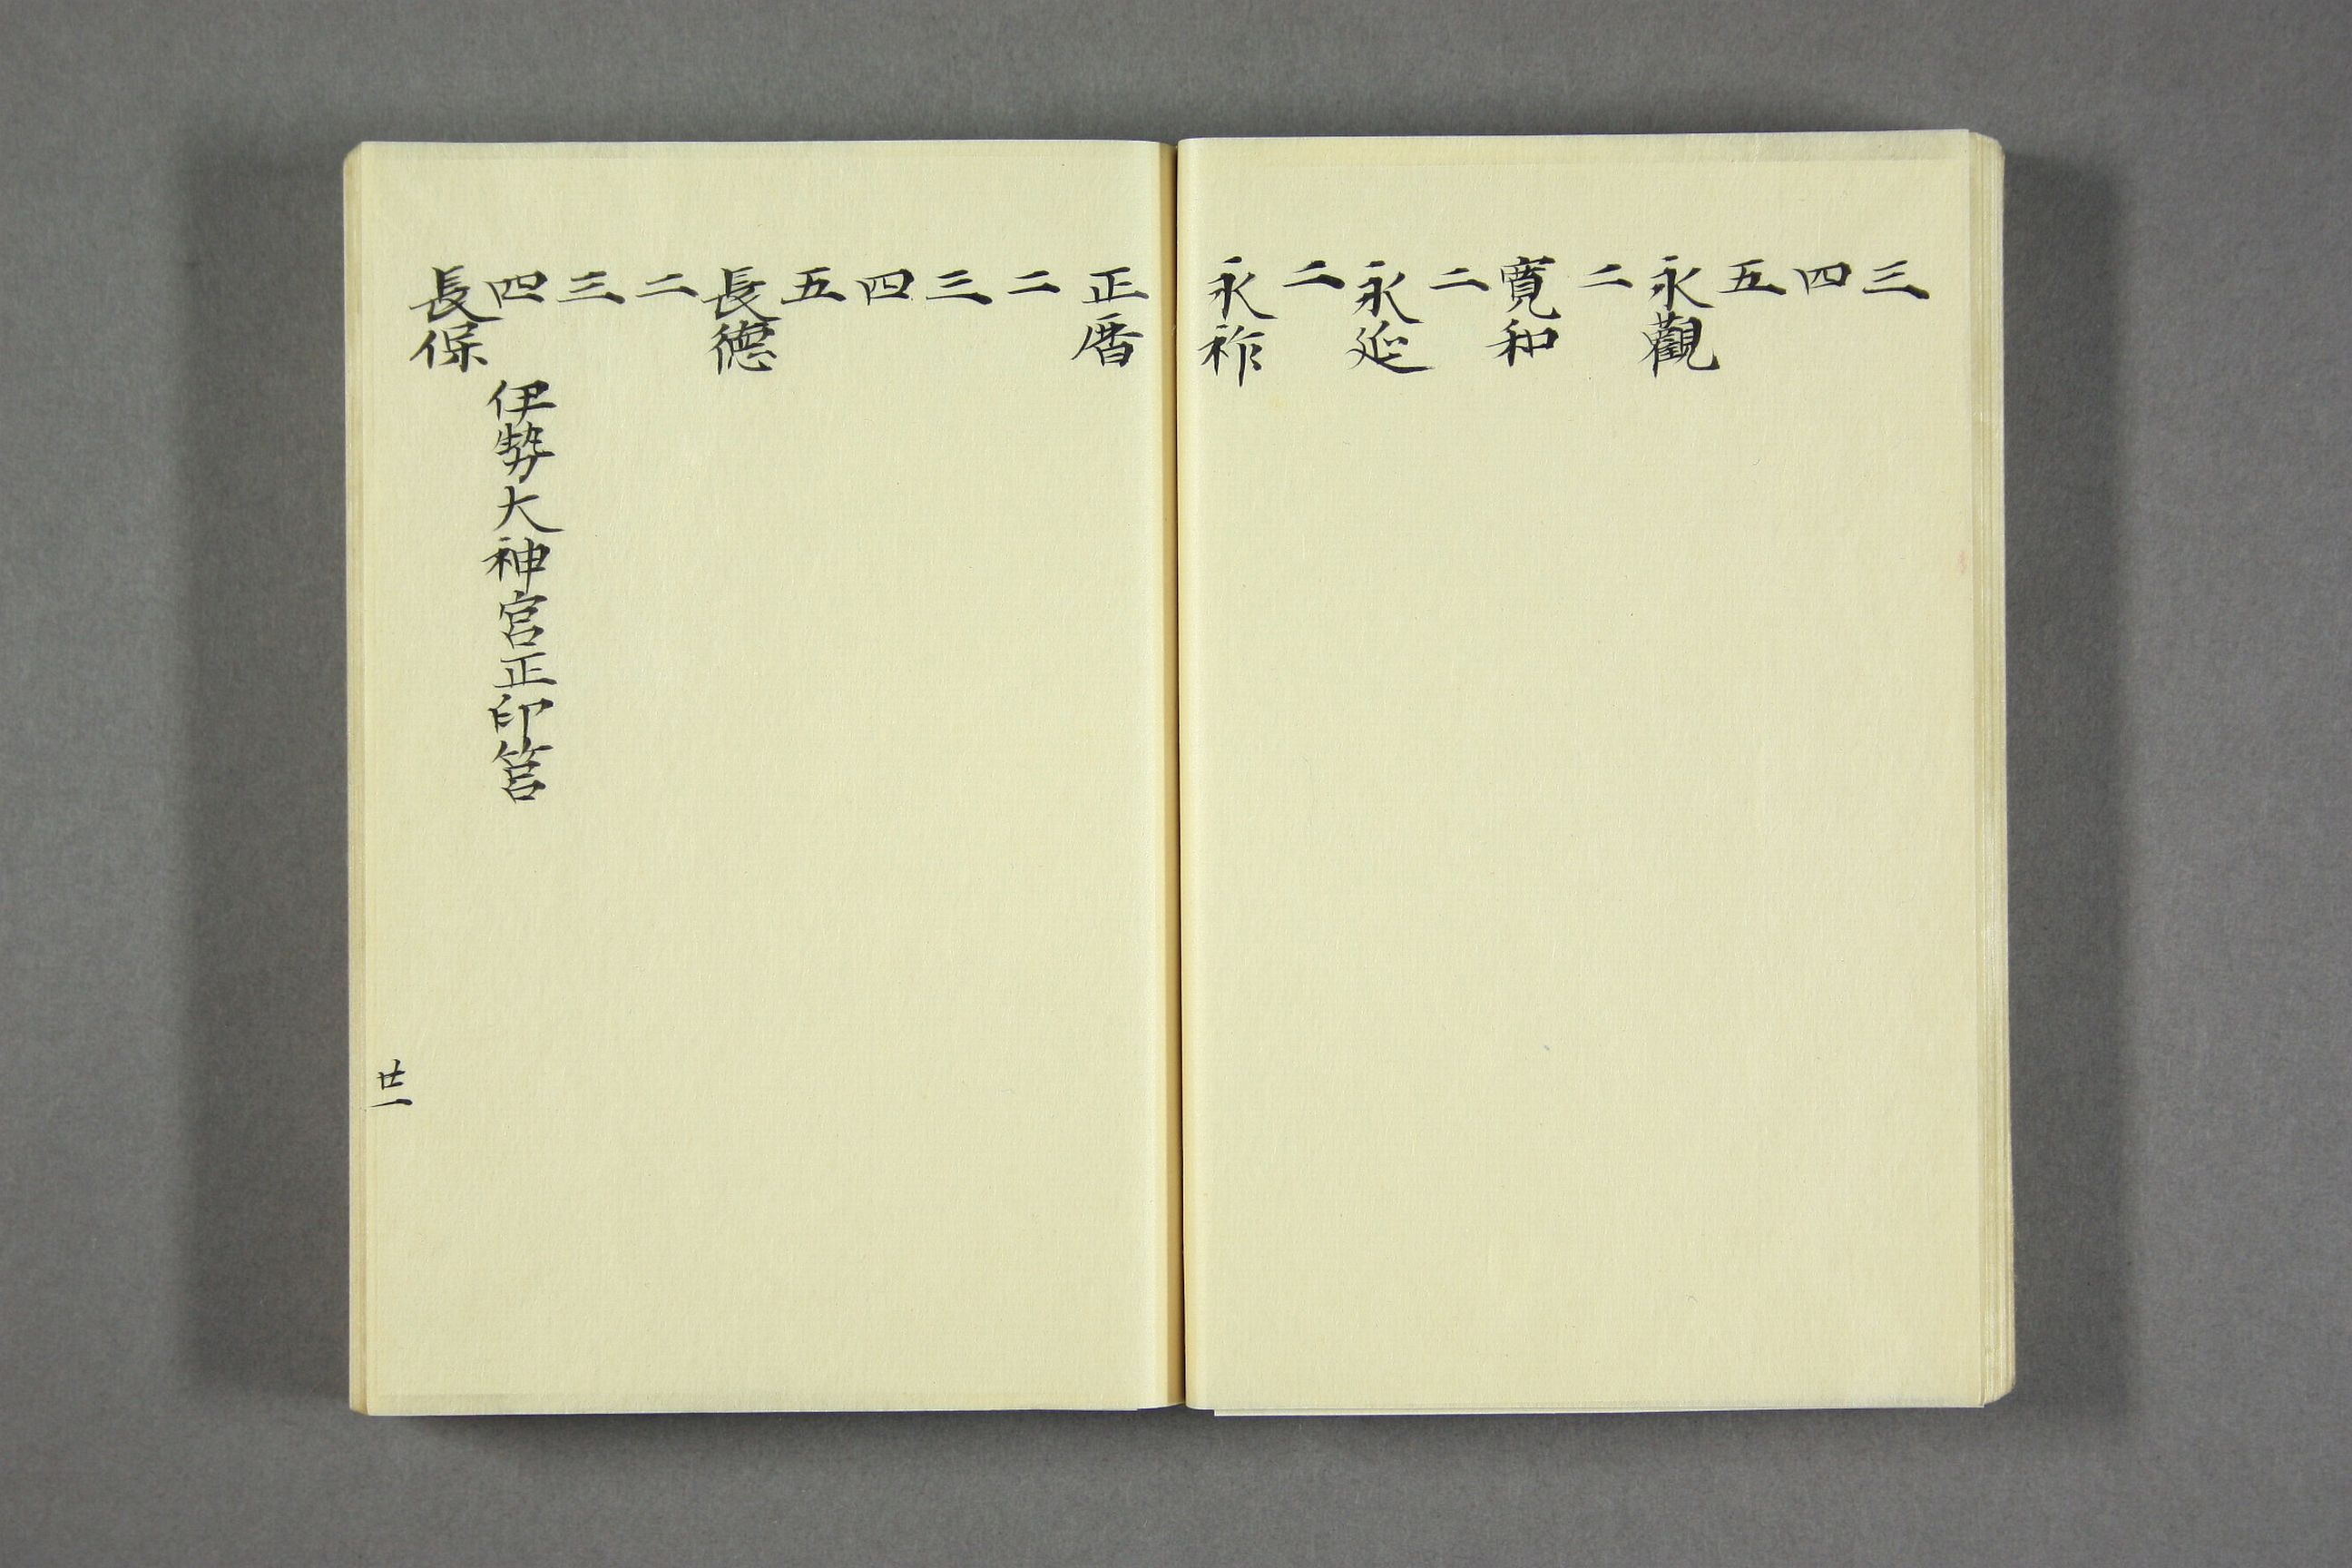 三
四
五
永觀
二
寛和
二
永延
二
永祚
正暦
二
三
四
五
長德
二
三
四 伊勢大神宮正印筥
長保
廿一